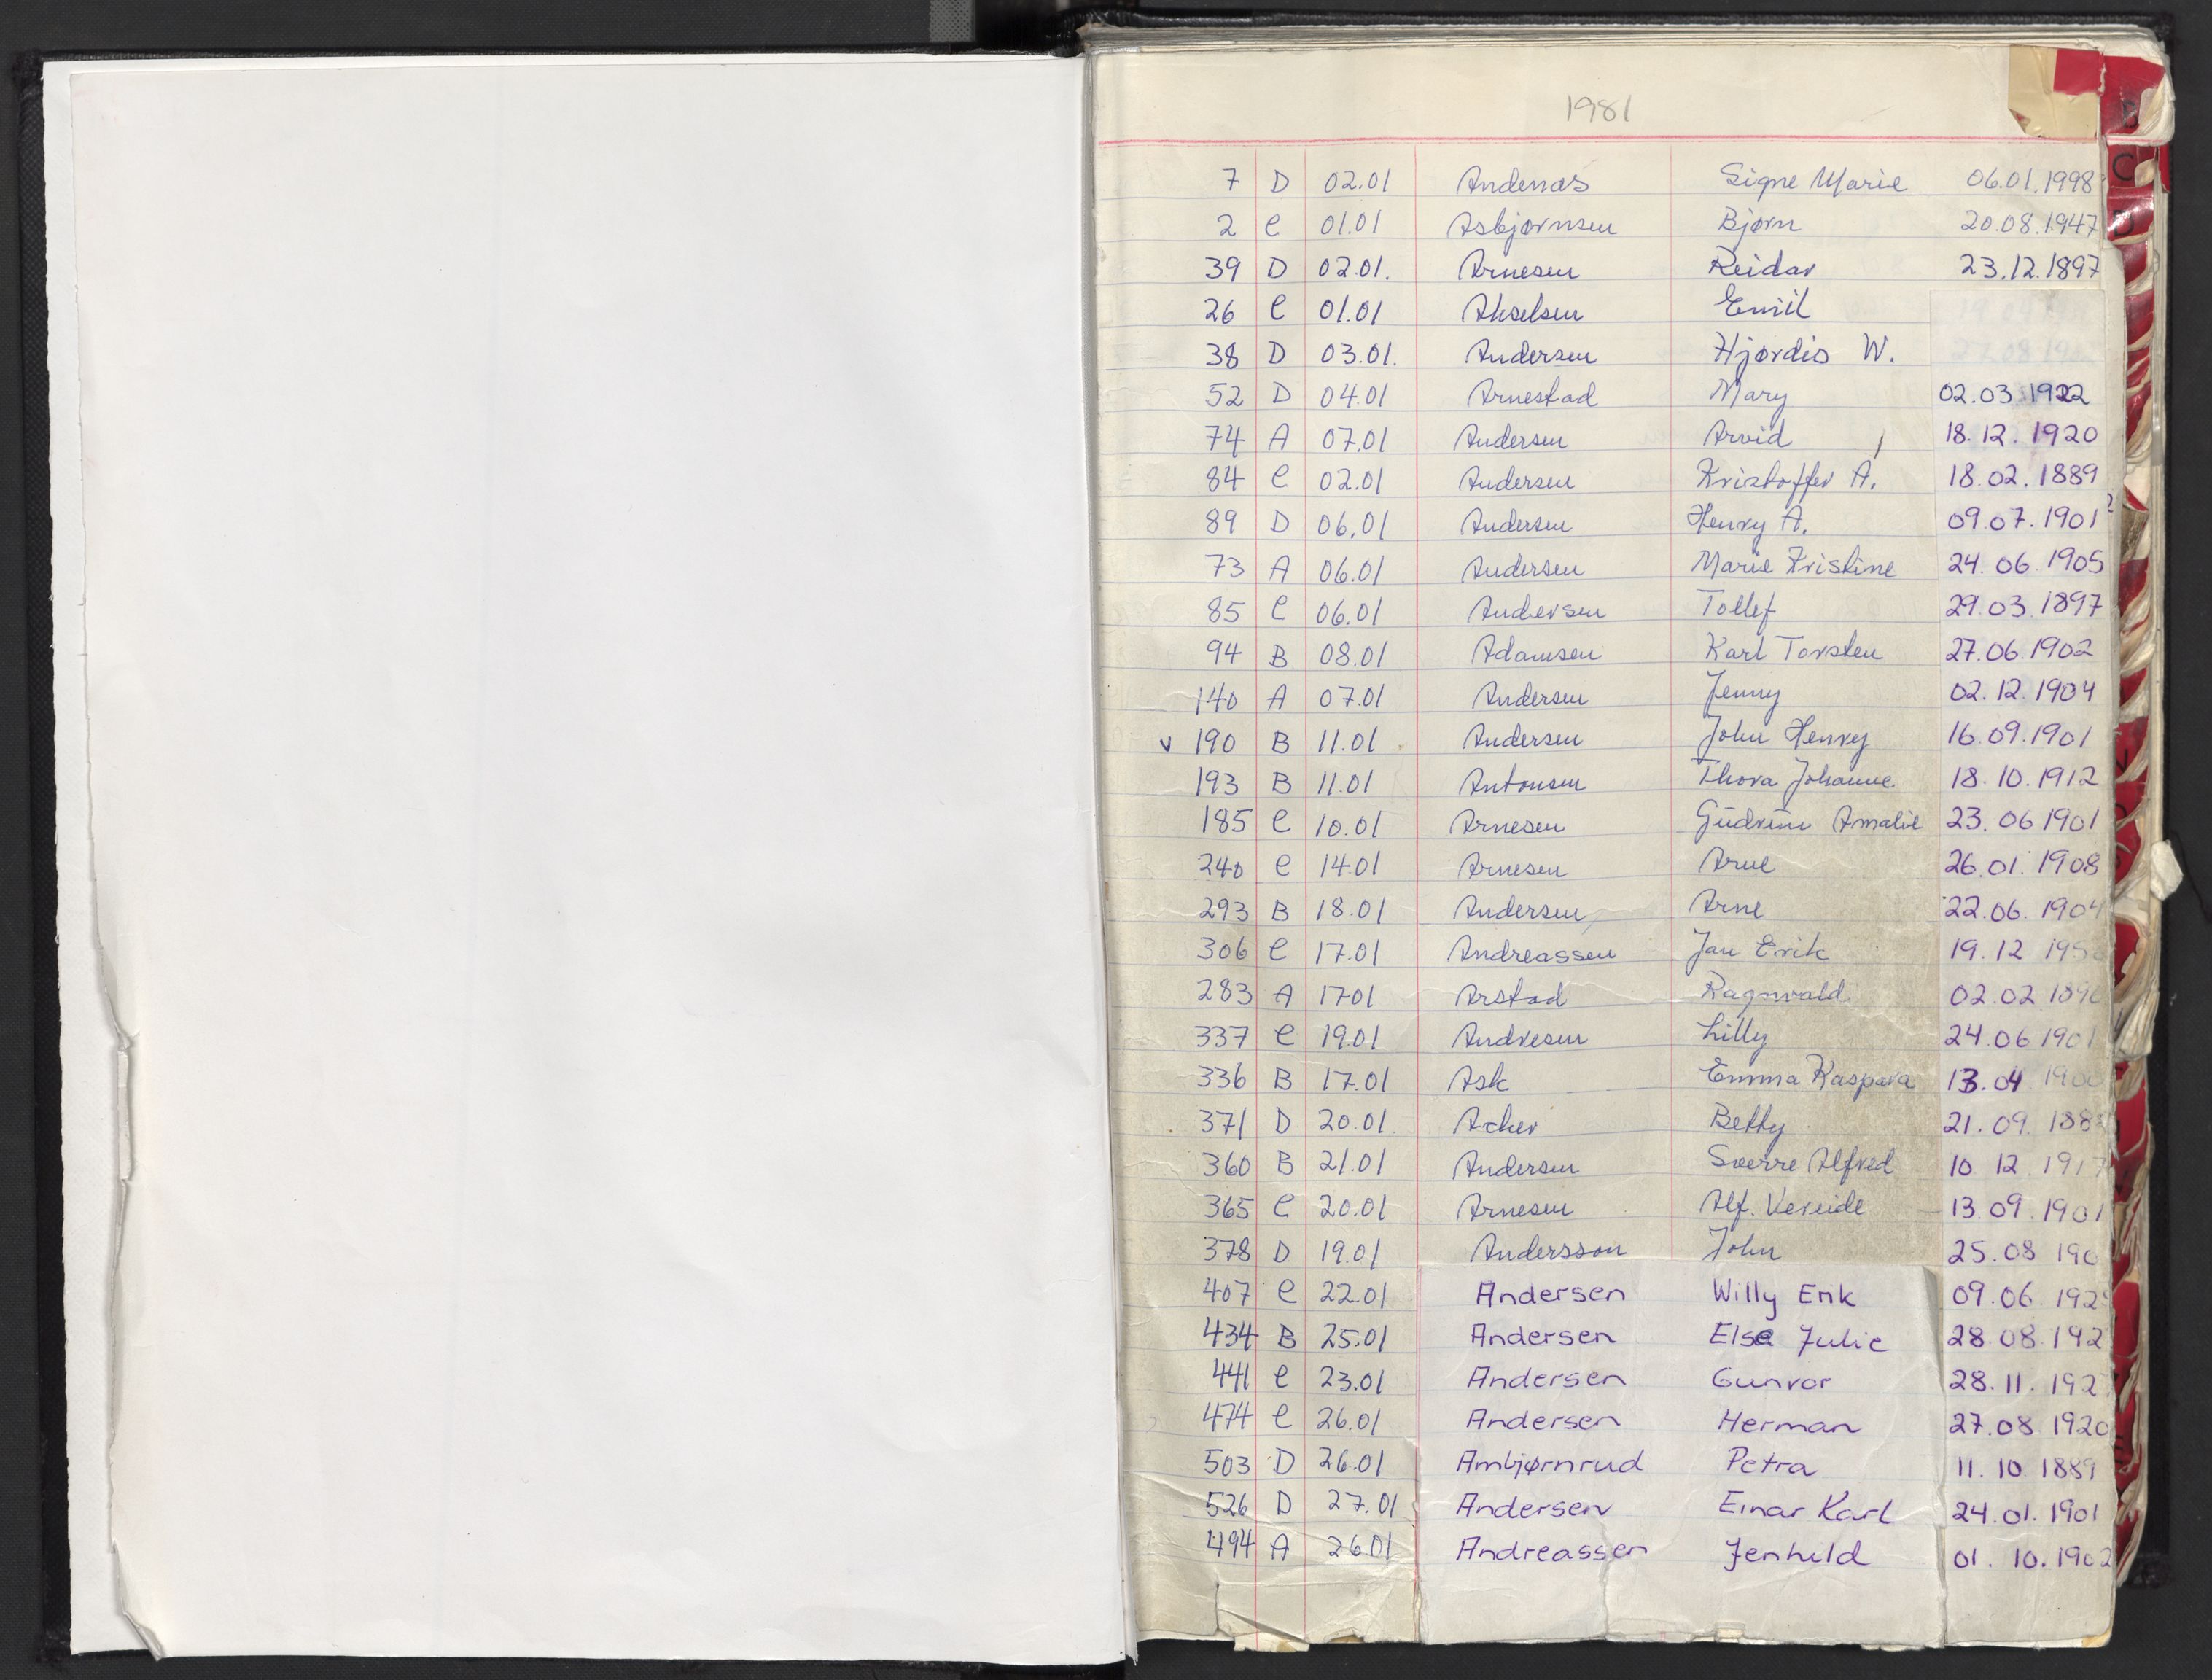 1981
7 D 02.01 Andenæs Signe Marie 06.01.1998
2 C 01.01 Asbjørnsen Bjørn 20.08.1947
39 D 02.01. Arnesen Reidar 23.12.1897
26 C 01.01 Akselsen Emil
38 D 03.01. Andersen Hjørdis W.
52 D 04.01 Arnestad Mary 02.03 1922
74 A 07.01 Andersen Arvid 18.12.1920
84 C 02.01 Andersen Kristoffer A. 18.02.1889
89 D 06.01 Andersen Henry A. 09.07.1901
73 A 06.01 Andersen Marie Kristine 24.06.1905
85 C 06.01 Andersen Tollef 29.03.1897
94 B 08.01 Adamsen Karl Torsten 27.06.1902
140 A 07.01 Andersen Jenny 02.12.1904
v 190 B 11.01 Andersen John Henry 16.09.1901
193 B 11.01 Antonsen Thora Johanne 18.10.1912
185 C 10.01 Arnesen Gudrun Amalie 23.06 1901
240 C 14.01 Arnesen Arne 26.01.1908
293 B 18.01 Andersen Arne 22.06.1904
306 C 17.01 Andreassen Jan Erik 19.12
283 A 17.01 Arstad Ragnvald 02.02
337 C 19.01 Andresen Lilly 24.06 1901
336 B 17.01 Ask Emma Kaspara 13.04 1900
371 D 20.01. Acher Betty 21.09.
360 B 21.01 Andersen Sverre Alfred 10 12 1917
365 C 20.01 Arnesen Alf. Vereide 13.09.1901
378 D 19.01 Andersson John 25.08 190
407 C 22.01 Andersen Willy Erik 09.06 192
434 B 25.01 Andersen Else Julie 28.08.192
441 C 23.01 Andersen Gunvor 28.11.192
474 C 26.01 Andersen Herman 27.08 1920
503 D 26.01 Ambjørnrud Petra 11.10 1889
526 D 27.01 Andersen Einar Karl 24.01.1901
494 A 26.01 Andreassen Jenhild 01.10.1902
C
D